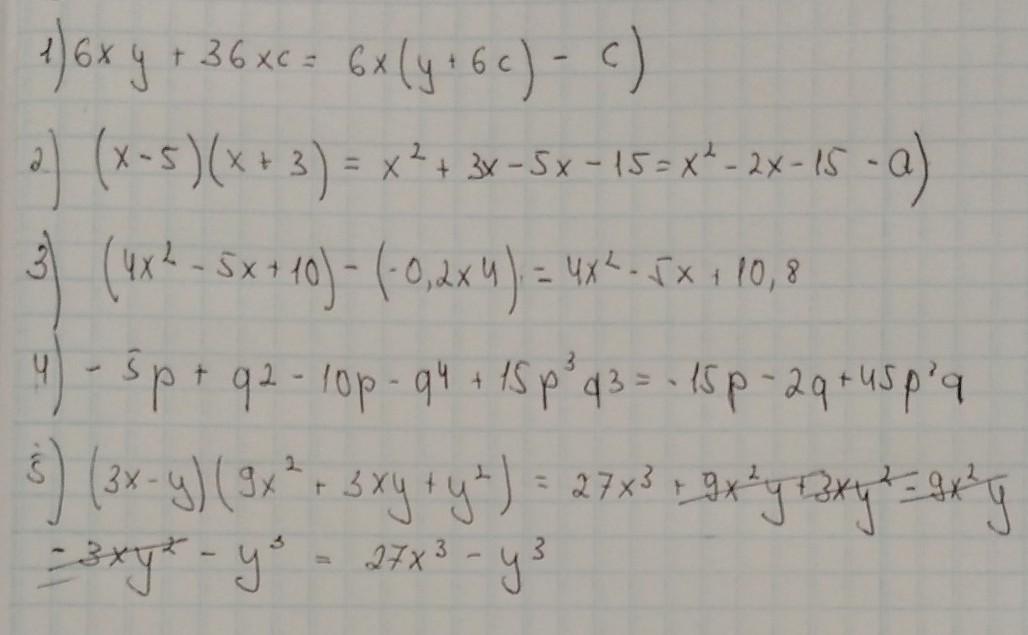 1) 6xy + 36xc = 6x(y + 6c) - c)
2) (x - 5)(x + 3) = x² + 3x - 5x - 15 = x² - 2x - 15 - a)
3) (4x² - 5x + 10) - (-0,2x4) = 4x² - 5x + 10,8
4) - 5p + q2 - 10p - q4 + 15p³q3 = -15p - 2q + 45p³q
5) (3x - y)(9x² + 3xy + y²) = 27x³ + 9x²y + 3xy² - 9x²y
- 3xy² - y³ = 27x³ - y³